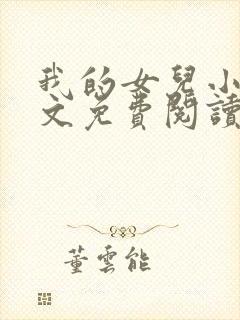 我的女兒小
文免費閱讀
董雲能